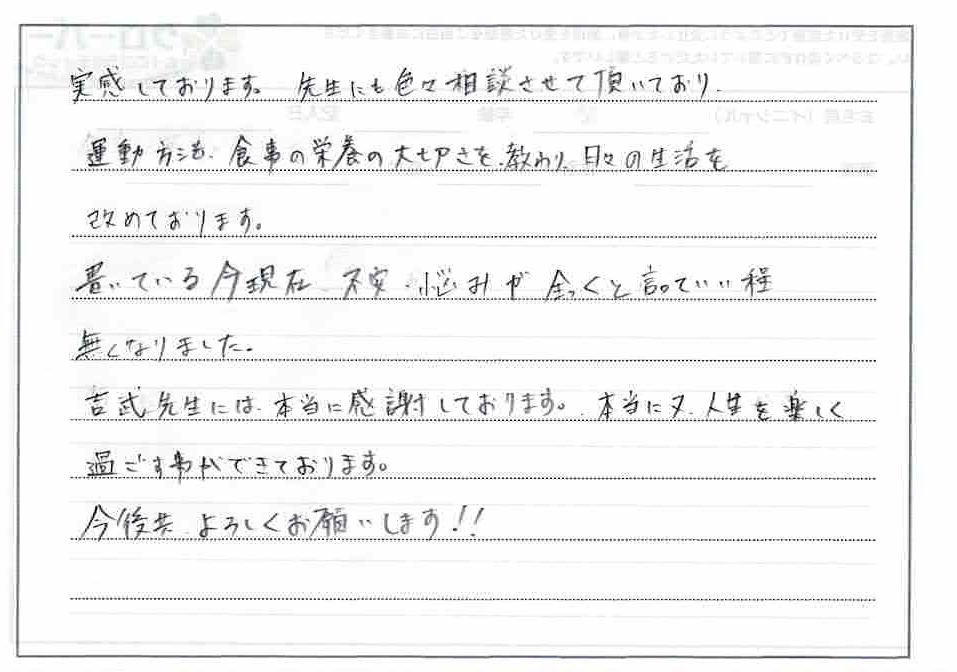 実感しております。先生にも色々相談させて頂いており、
運動方法、食事の栄養の大切さを、教わり、日々の生活を
改めております。
書いている今現在、不安・悩みが全くと言っていい程
無くなりました。
吉武先生には、本当に感謝しております。本当に又、人生を楽しく
過ごす事ができております。
今後共、よろしくお願いします!!